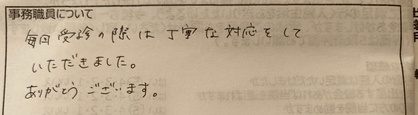 事務職員について
毎回受診の際は丁寧な対応をして
いただきました。
ありがとうございます。